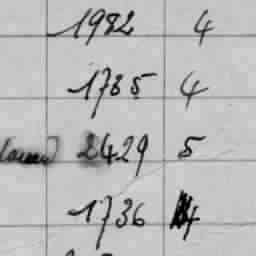 1982 4
1785 4
2429 5
1736 4